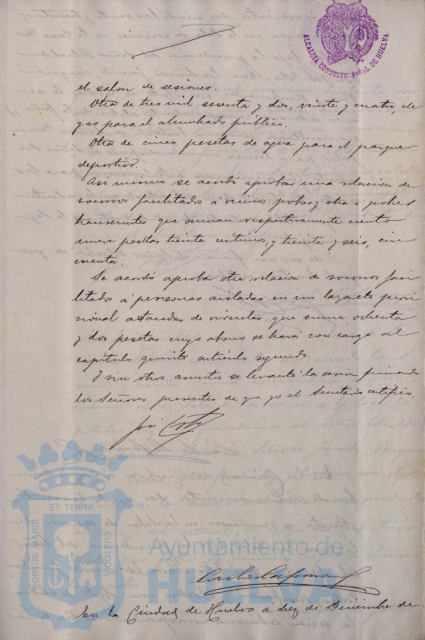 ALCALDIA CONSTITUCIONAL DE HUELVA
el salon de sesiones.
Otra de tres mil sesenta y dos, veinte y cuatro, de
gas para el alumbrado público.
Otra de cinco pesetas de agua para el parque
deportivo.
Asi mismo se acordó aprobar una relacion de
socorros facilitado á vecinos pobres y otra á pobres
transeuntes que suman respectivamente ciento
nueve pesetas treinta centimos, y treinta y seis, cin
cuenta.
Se acordó aprobar otra relacion de socorros faci
litados á personas aisladas en un lazareto provi
sional atacadas de viruelas que suma ochenta
y dos pesetas cuyo abono se hará con cargo al
capitulo quinto artículo segundo.
Y sin otros asuntos se levantó la sesion firmando
los Señores presentes de que yo el Secretario certifico.
ET TERRÆ
PORTUS MARIS
CUSTODIA
Ayuntamiento de
HUELVA
En la Ciudad de Huelva a diez de Diciembre de